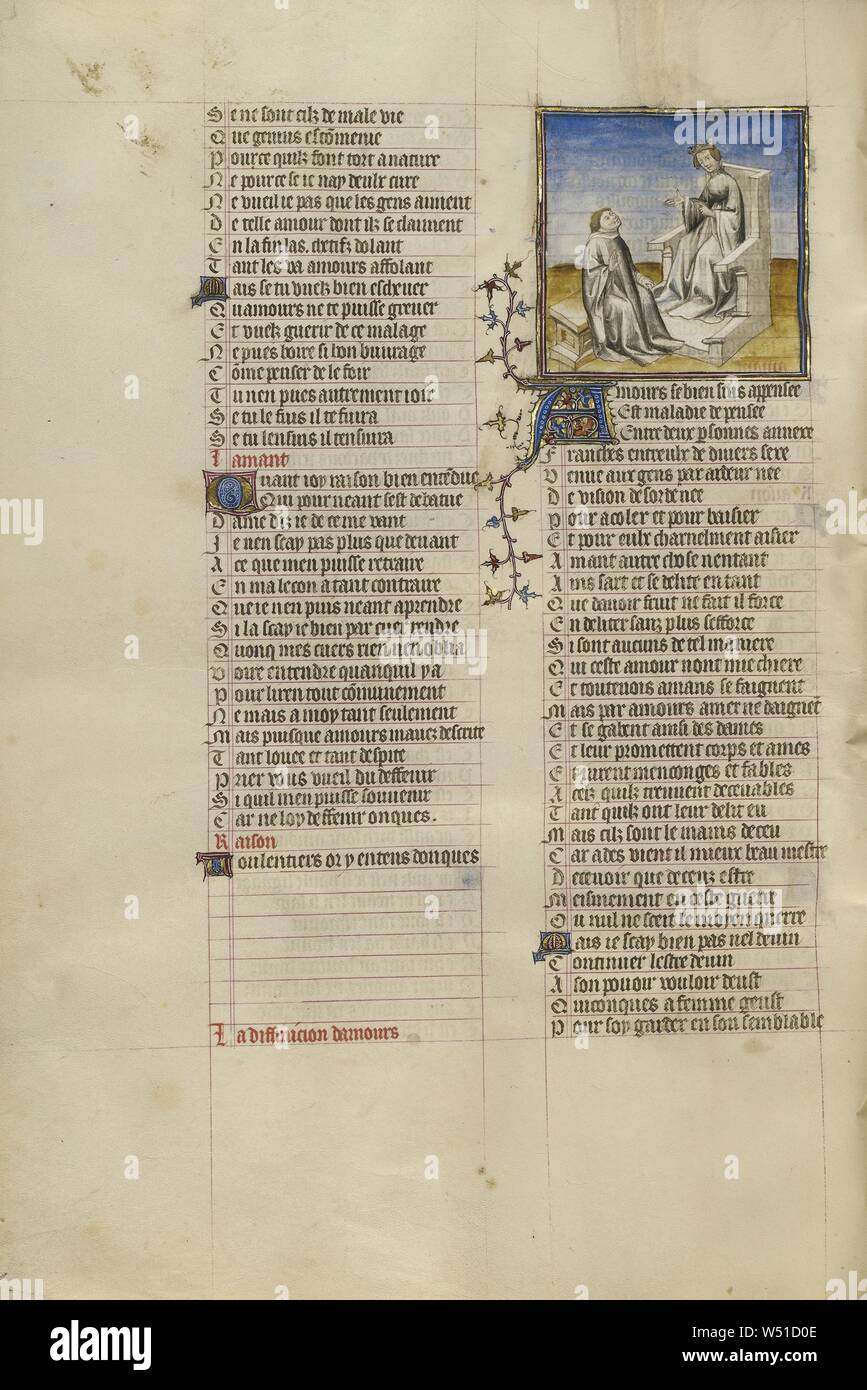 Se ne sont cilz de male vie
Que genius escōmenie
Pource quilz font tort a nature
Ne pource se ie nay deulx cure
Ne vueil ie pas que les gens aiment
De telle amour dont ilz se claiment
En la fin las. chetifz dolant
Tant les va amours affolant
Mais se tu vuelz bien escheuer
Quamours ne te puisse greuer
Et vuelz guerir de ce malage
Ne pues boire si bon buurage
Cōme penser de le foir
Tu nen pues autrement ioir
Se tu le suis il te suira
Se tu lensuis il tensuira
Lamant
Quant ioy raison bien entēdue
Qui pour neant sest debatue
Dame dis ie de ce me vant
Je nen scay pas plus que deuant
A ce que men puisse retraire
En ma lecon a tant contraire
Que ie nen puis neant aprendre
Si la scay ie bien par cuer rendre
Quonq mes cuers rien nen oblia
Voire entendre quanquil y a
Pour lire tout cōmunement
Ne mais a moy tant seulement
Mais puisque amours mauez descrite
Tant louee et tant despite
Prier vous vueil du deffenir
Si quil men puisse souuenir
Car ne loy deffenir onques.
Raison
Voulentiers or y entens donques
La diffinicion damours
Amours se bien suis appensee
Est maladie de pensee
Entre deux psonnes annexe
Franches entreulx de diuers sexe
Venue aux gens par ardeur nee
De vision desordenee
Pour acoler et pour baisier
Et pour eulx charnelment aisier
Amant autre chose nentant
Ains sart et se delite en tant
Que dauoir fruit ne fait il force
En deliter sanz plus sefforce
Si sont aucuns de tel maniere
Qui ceste amour nont mie chiere
Et touteuois amans se faignent
Mais par amours amer ne daignent
Et se gabent ainsi des dames
Et leur promettent corps et ames
Et iurent menconges et fables
A ceulz quilz treuuent deceuables
Tant quilz ont leur delit eu
Mais cilz sont le mains deceu
Car ades vient il mieux beau mestre
Deceuoir que deceuz estre
Meismement en ceste guerre
Ou nul ne scet le moyen querre
Mais ie scay bien pas nel deuin
Continuer lestre deuin
A son pouoir vouloir deust
Quiconques a femme geust
Pour soy garder en son semblable
alamy
Image ID: W51D0E
www.alamy.com